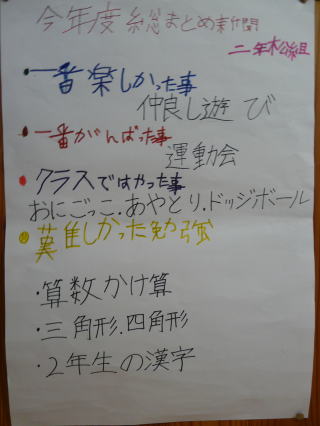 今年度総まとめ新聞
二年松組
・一番楽しかった事
仲良し遊び
・一番がんばった事
運動会
・クラスではやった事
おにごっこ.あやとり.ドッジボール
・難しかった勉強
・算数かけ算
・三角形.四角形
・2年生の漢字